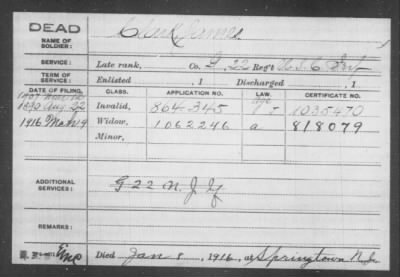 DEAD
NAME OF SOLDIER:
Clark, James
SERVICE:
Late rank, Co. G, 22 Reg't U.S.C. Inf
TERM OF SERVICE:
Enlisted , 1 Discharged , 1
DATE OF FILING. CLASS. APPLICATION NO. LAW. CERTIFICATE NO.
1890 Aug 22 Invalid, 864345 1035470
1916 Widow, 1062246 a 818079
Minor,
ADDITIONAL SERVICES:
G 22 N. J. Inf
REMARKS:
Died Jan 8, 1916, at Springtown N.J.